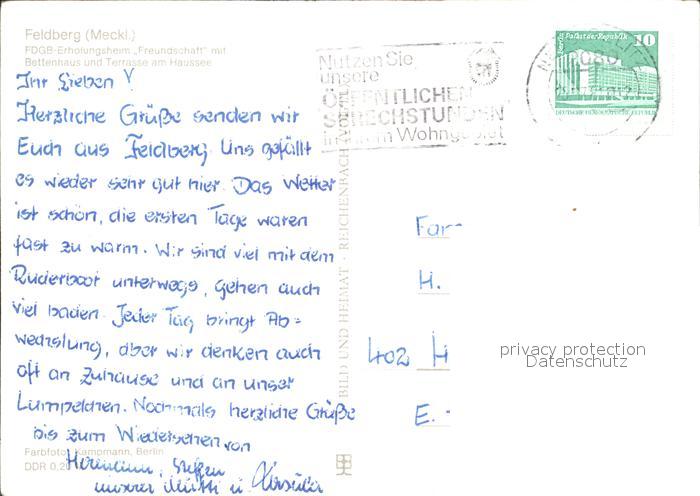 Feldberg (Meckl.)
FDGB-Erholungsheim „Freundschaft" mit
Bettenhaus und Terrasse am Haussee
Ihr Lieben!
Herzliche Grüße senden wir
Euch aus Feldberg. Uns gefällt
es wieder sehr gut hier. Das Wetter
ist schön, die ersten Tage waren
fast zu warm. Wir sind viel mit dem
Ruderboot unterwegs, gehen auch
viel baden. Jeder Tag bringt Ab-
wechslung, aber wir denken auch
oft an Zuhause und an unser
Lumpelchen. Nochmals herzliche Grüße
bis zum Wiedersehen von
Steffen
unserer Mutti u. Ursula
Farbfoto: Kampmann, Berlin
DDR 0,20
BILD UND HEIMAT · REICHENBACH
Nutzen Sie
unsere
ÖFFENTLICHEN
SPRECHSTUNDEN
in Ihrem Wohngebiet
Berlin, Palast der Republik 10
DEUTSCHE DEMOKRATISCHE REPUBLIK
Fam
H.
402 H
E.
privacy protection
Datenschutz